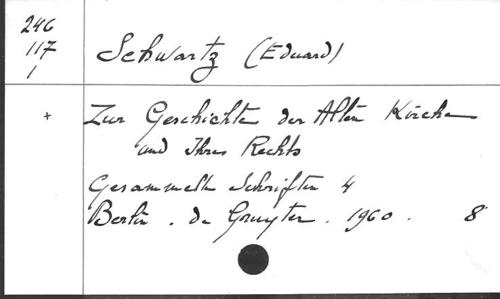 246
117
1
Schwartz (Eduard)
+ Zur Geschichte der Alten Kirche
und Ihres Rechts
Gesammelte Schriften 4
Berlin . de Gruyter . 1960 . 8